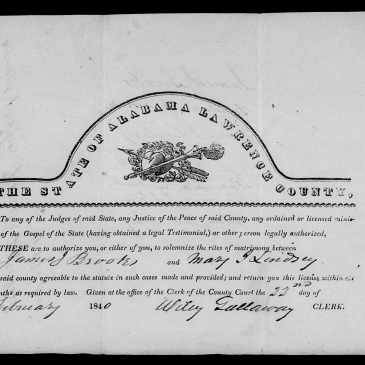 THE STATE OF ALABAMA LAWRENCE COUNTY,
To any of the Judges of said State, any Justice of the Peace of said County, any ordained or licensed
of the Gospel of the State (having obtained a legal Testimonial,) or other person legally authorized,
THESE are to authorize you, or either of you, to solemnize the rites of matrimony between
James J Brooks and Mary J Lindsey
said county agreeable to the statute in such cases made and provided; and return you this license within
nths as required by law. Given at the office of the Clerk of the County Court the 22nd day of
February 1840 Wiley Gallaway CLERK.